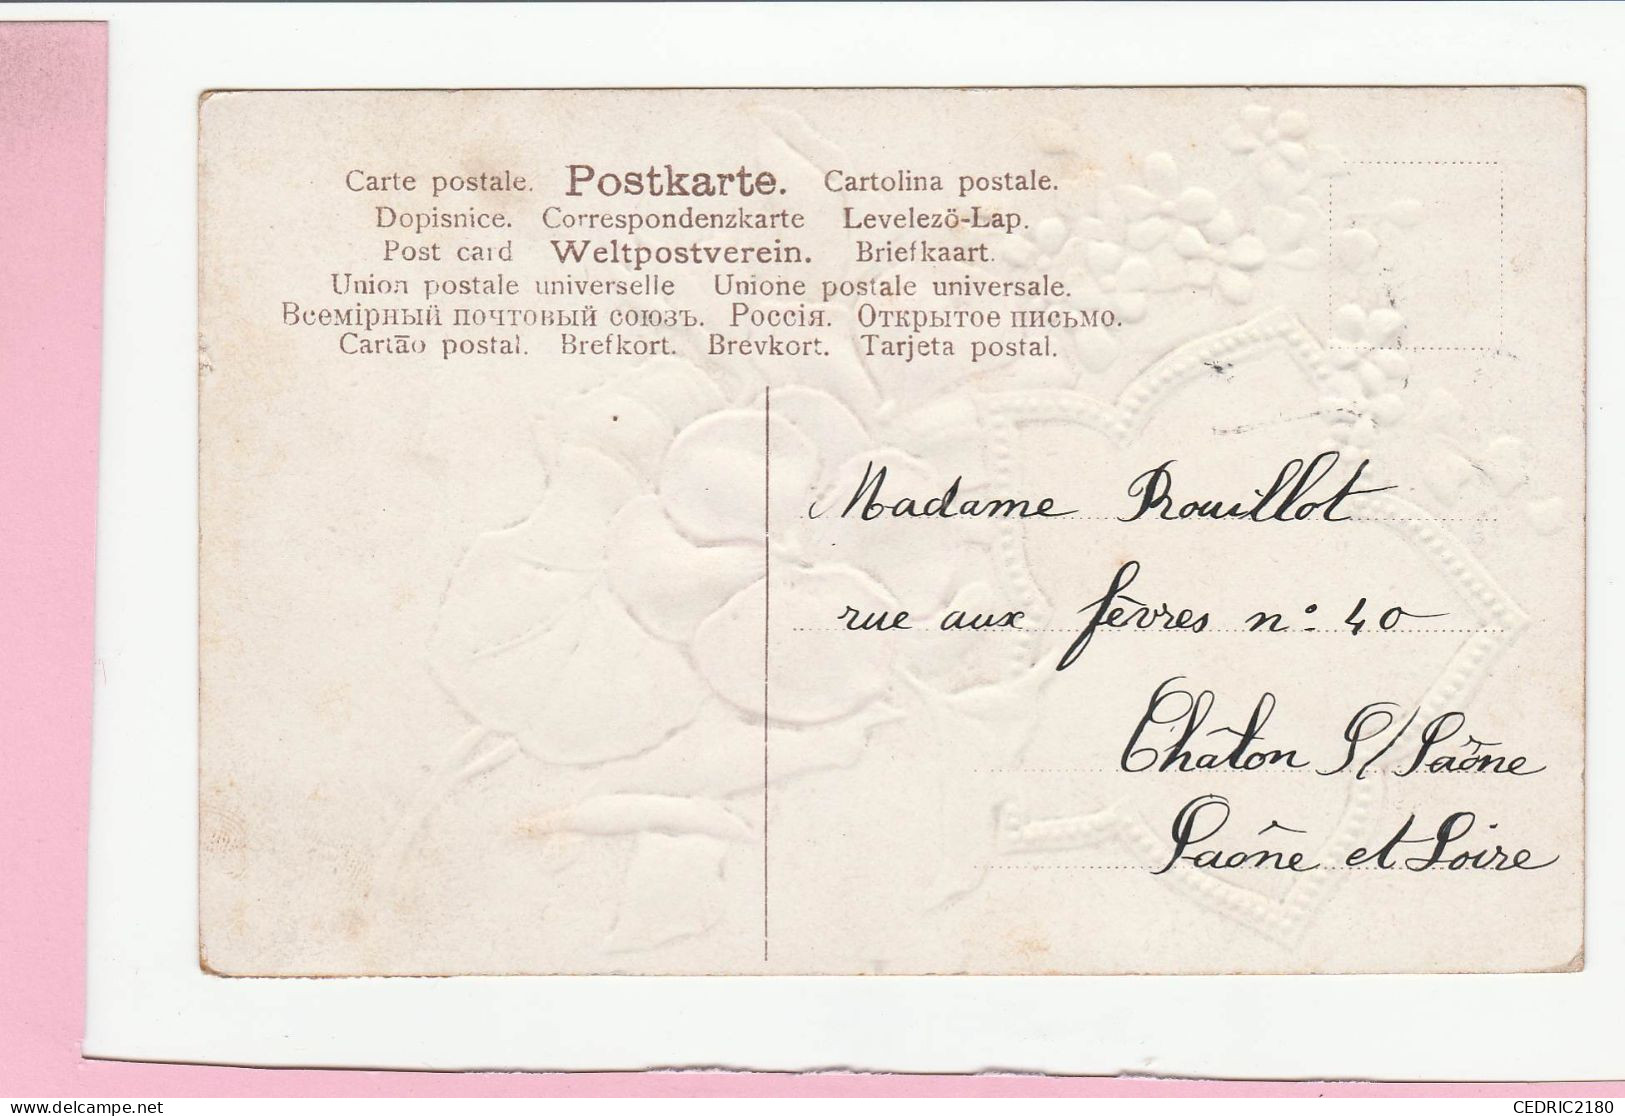 Carte postale. Postkarte. Cartolina postale.
Dopisnice. Correspondenzkarte Levelezö-Lap.
Post card Weltpostverein. Briefkaart.
Union postale universelle Unione postale universale.
Всемірный почтовый союзъ. Россія. Открытое письмо.
Cartão postal. Brefkort. Brevkort. Tarjeta postal.
Madame Rouillot
rue aux fèvres n° 40
Châlon S/ Saône
Saône et Loire
CEDRIC2180